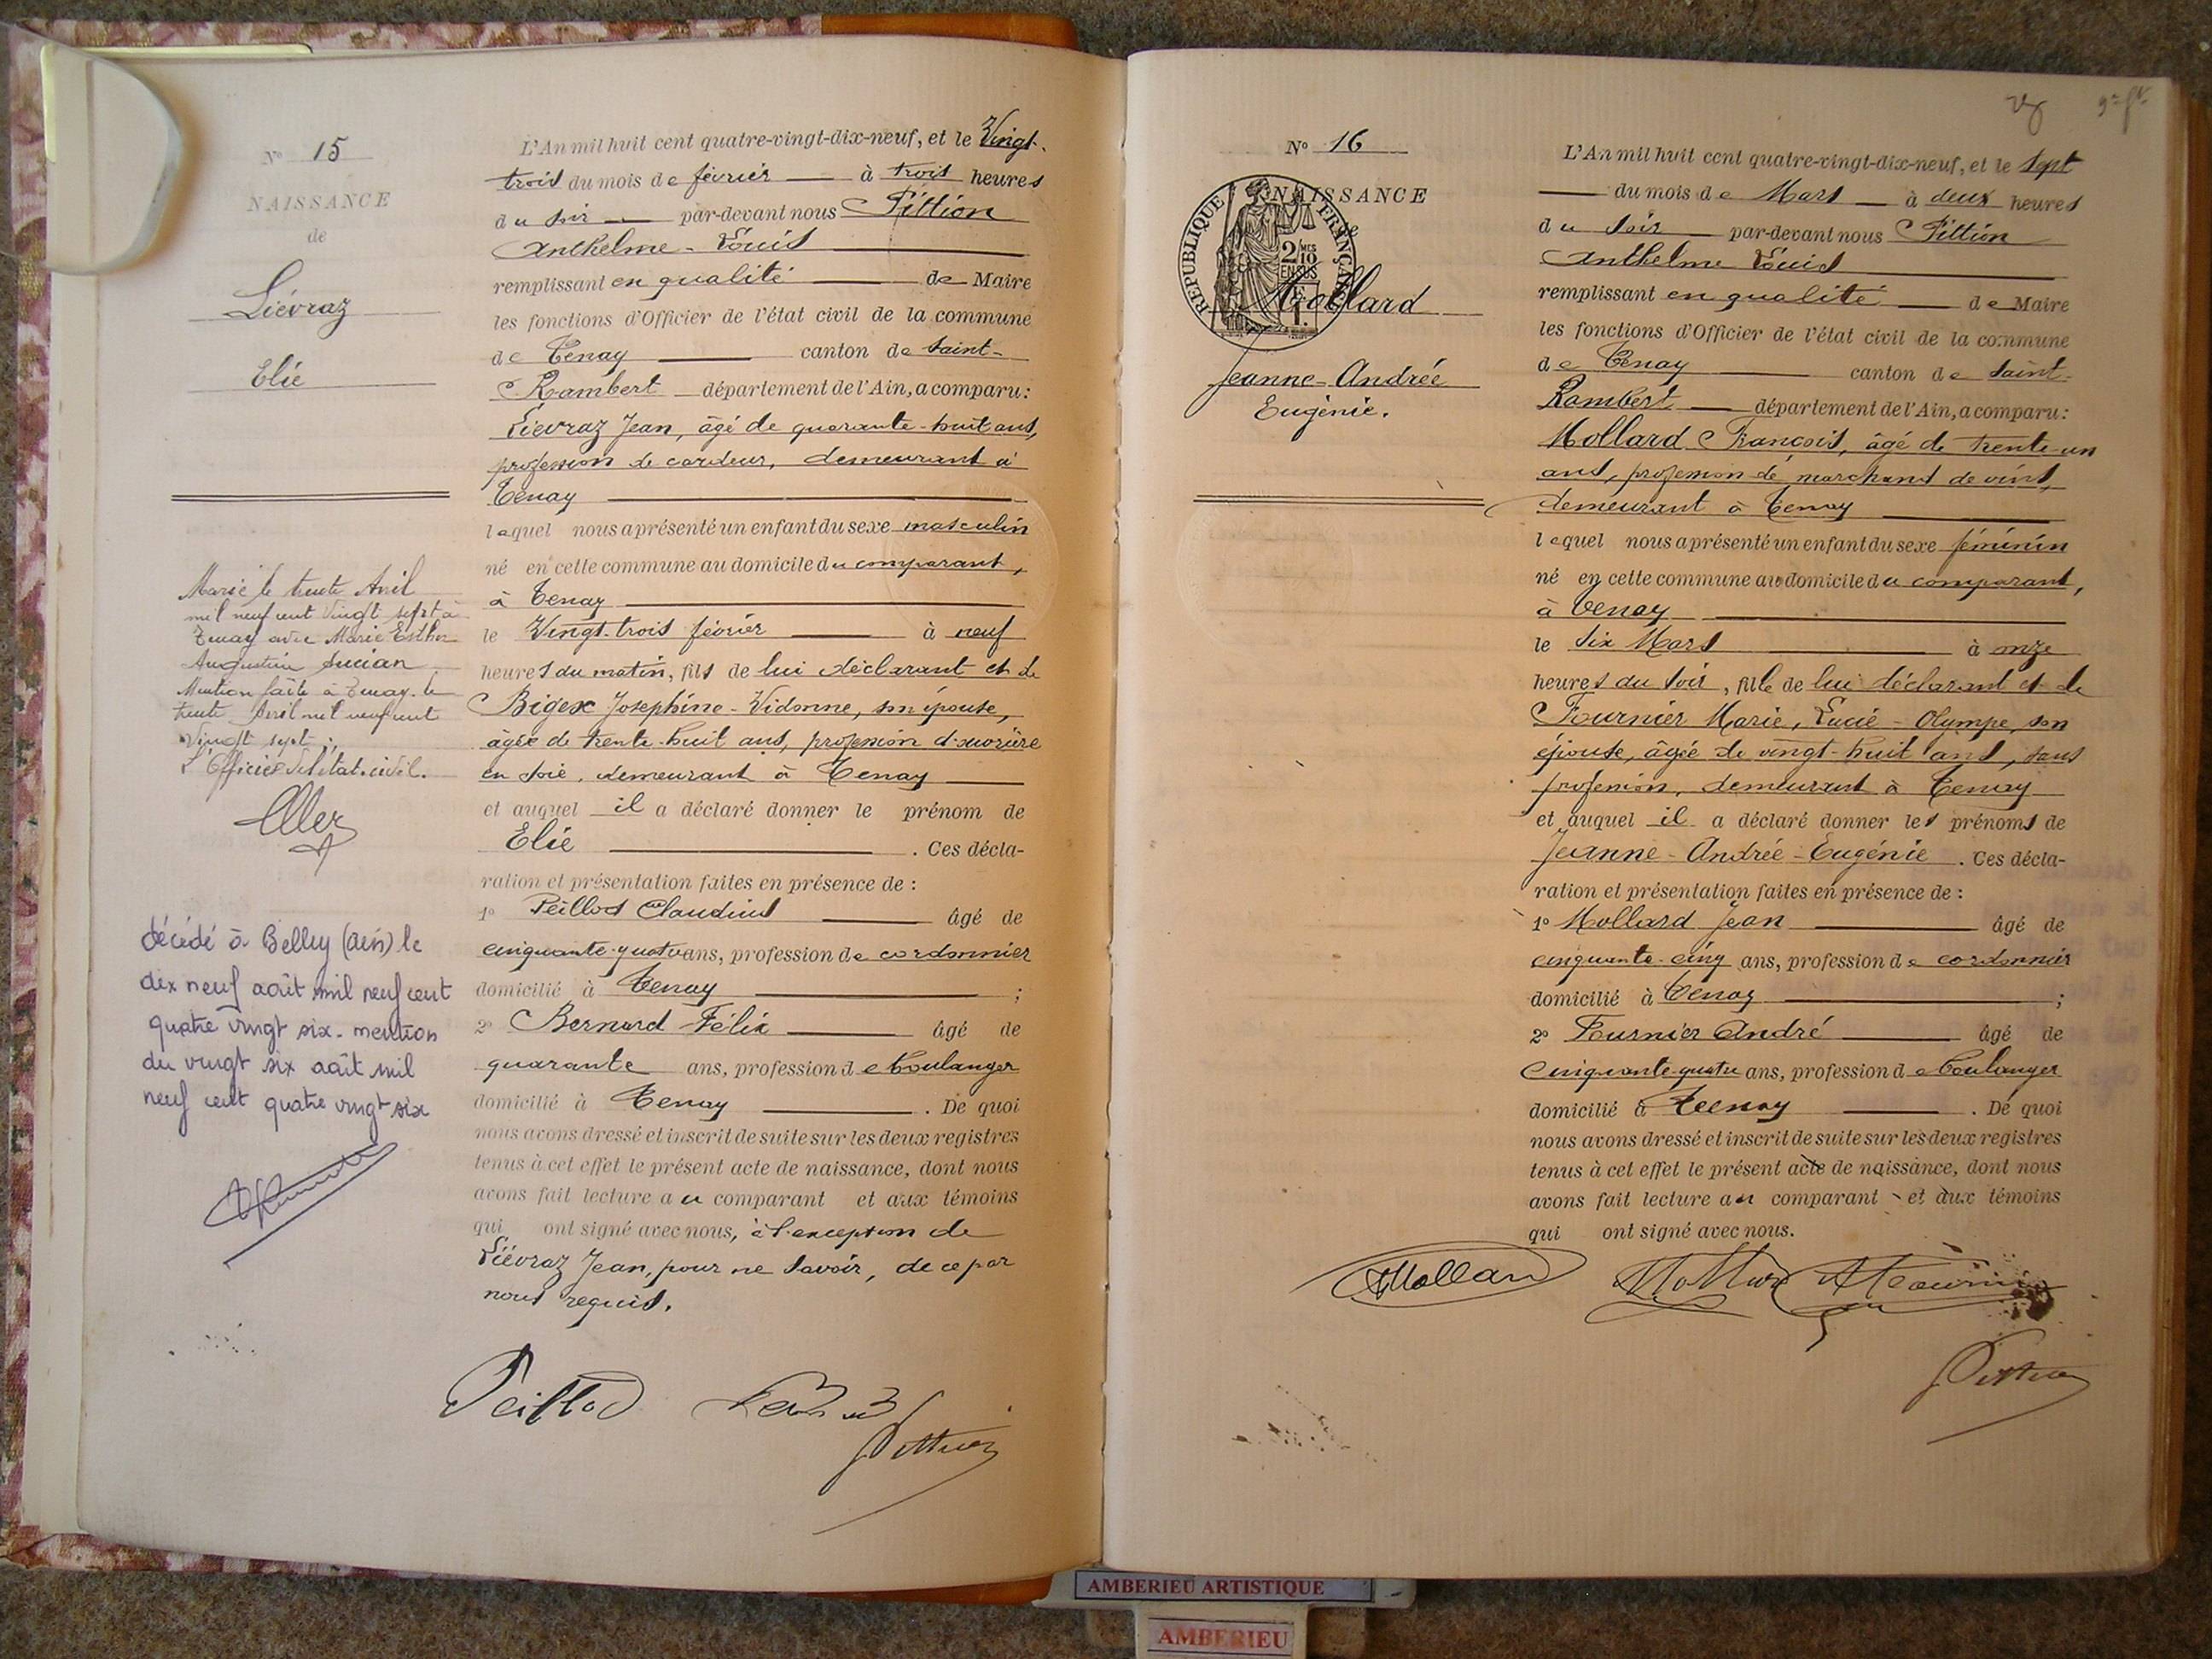 N° 15
NAISSANCE
de
Liévraz
Elie
Marié le trente Avril
mil neuf cent Vingt sept à
Tenay avec Marie Esther
Augustine Lucian
Mention faite à Tenay le
trente Avril mil neuf cent
Vingt sept :
L'Officier de l'état-civil.
décédé à Belley (Ain) le
dix neuf août mil neuf cent
quatre vingt six - mention
du vingt six août mil
neuf cent quatre vingt six
L'An mil huit cent quatre-vingt-dix-neuf, et le Vingt-
trois du mois de février à trois heures
du soir par-devant nous Pittion
Anthelme-Louis
remplissant en qualité de Maire
les fonctions d'Officier de l'état civil de la commune
de Tenay canton de Saint-
Rambert département de l'Ain, a comparu :
Liévraz Jean, âgé de quarante-huit ans,
profession de cardeur, demeurant à
Tenay
lequel nous a présenté un enfant du sexe masculin
né en cette commune au domicile du comparant,
à Tenay
le Vingt-trois février à neuf
heures du matin, fils de lui déclarant et de
Bigex Josephine-Vidonne, son épouse,
âgée de trente-huit ans, profession d'ouvrière
en soie, demeurant à Tenay
et auquel il a déclaré donner le prénom de
Elie . Ces décla-
ration et présentation faites en présence de :
1° Peillod Claudius âgé de
cinquante-quatre ans, profession de cordonnier
domicilié à Tenay ;
2° Bernard Félix âgé de
quarante ans, profession de boulanger
domicilié à Tenay . De quoi
nous avons dressé et inscrit de suite sur les deux registres
tenus à cet effet le présent acte de naissance, dont nous
avons fait lecture au comparant et aux témoins
qui ont signé avec nous, à l'exception de
Liévraz Jean, pour ne savoir, de ce par
nous requis.
Peillod
Pittion
N° 16
NAISSANCE
de
RÉPUBLIQUE FRANÇAISE
2/10 MES
EN SUS
Mollard
Jeanne-Andrée
Eugénie.
L'An mil huit cent quatre-vingt-dix-neuf, et le sept
du mois de Mars à deux heures
du soir par-devant nous Pittion
Anthelme Louis
remplissant en qualité de Maire
les fonctions d'Officier de l'état civil de la commune
de Tenay canton de Saint-
Rambert département de l'Ain, a comparu :
Mollard François, âgé de trente-un
ans, profession de marchand de vins,
demeurant à Tenay
lequel nous a présenté un enfant du sexe féminin
né en cette commune au domicile du comparant,
à Tenay
le six Mars à onze
heures du soir, fille de lui déclarant et de
Fournier Marie, Lucie-Olympe, son
épouse, âgée de vingt-huit ans, sans
profession, demeurant à Tenay
et auquel il a déclaré donner les prénoms de
Jeanne-Andrée-Eugénie . Ces décla-
ration et présentation faites en présence de :
1° Mollard Jean âgé de
cinquante-cinq ans, profession de cordonnier
domicilié à Tenay ;
2° Fournier André âgé de
cinquante-quatre ans, profession de boulanger
domicilié à Tenay . De quoi
nous avons dressé et inscrit de suite sur les deux registres
tenus à cet effet le présent acte de naissance, dont nous
avons fait lecture au comparant et aux témoins
qui ont signé avec nous.
Mollard Mollard
Pittion
AMBERIEU ARTISTIQUE
AMBERIEU